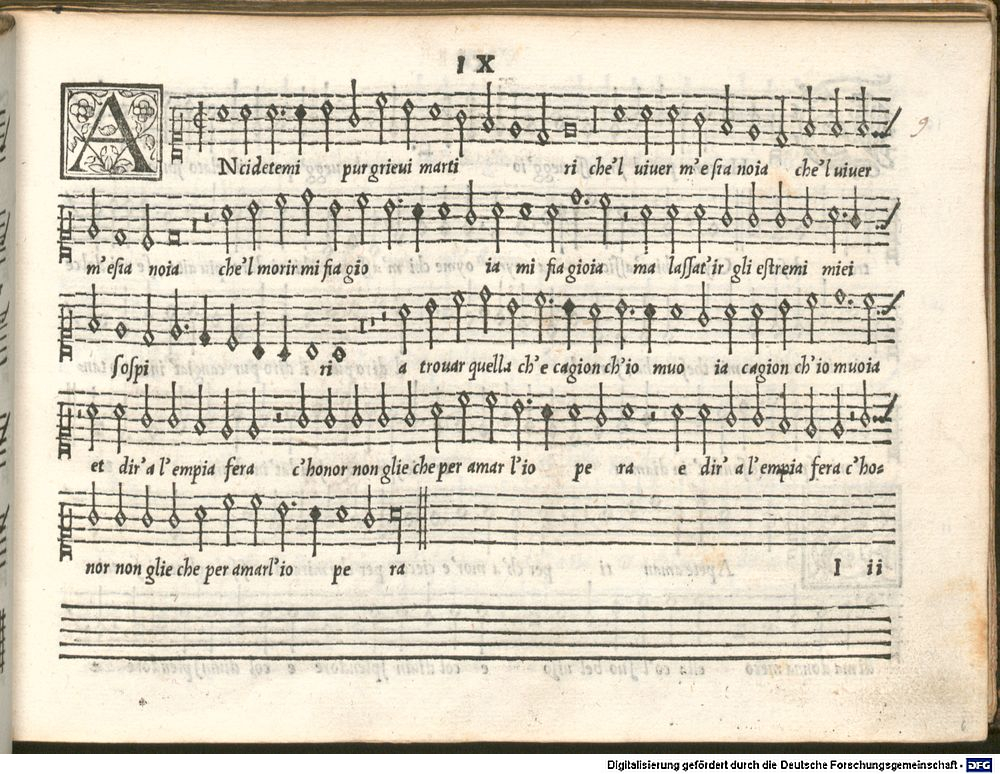 IX
9
ANcidetemi pur grievi marti ri che'l viver m'e sia noia che'l viver
m'esia noia che'l morir mi sia gio ia mi sia gioia ma lassat'ir gli estremi miei
sospi ri a trovar quella ch'e cagion ch'io muo ia cagion ch'io muoia
et dir'a l'empia fera c'honor non glie che per amar l'io pe ra e dir'a l'empia fera c'ho=
nor non glie che per amarl'io pe ra I ii
Digitalisierung gefördert durch die Deutsche Forschungsgemeinschaft - DFG